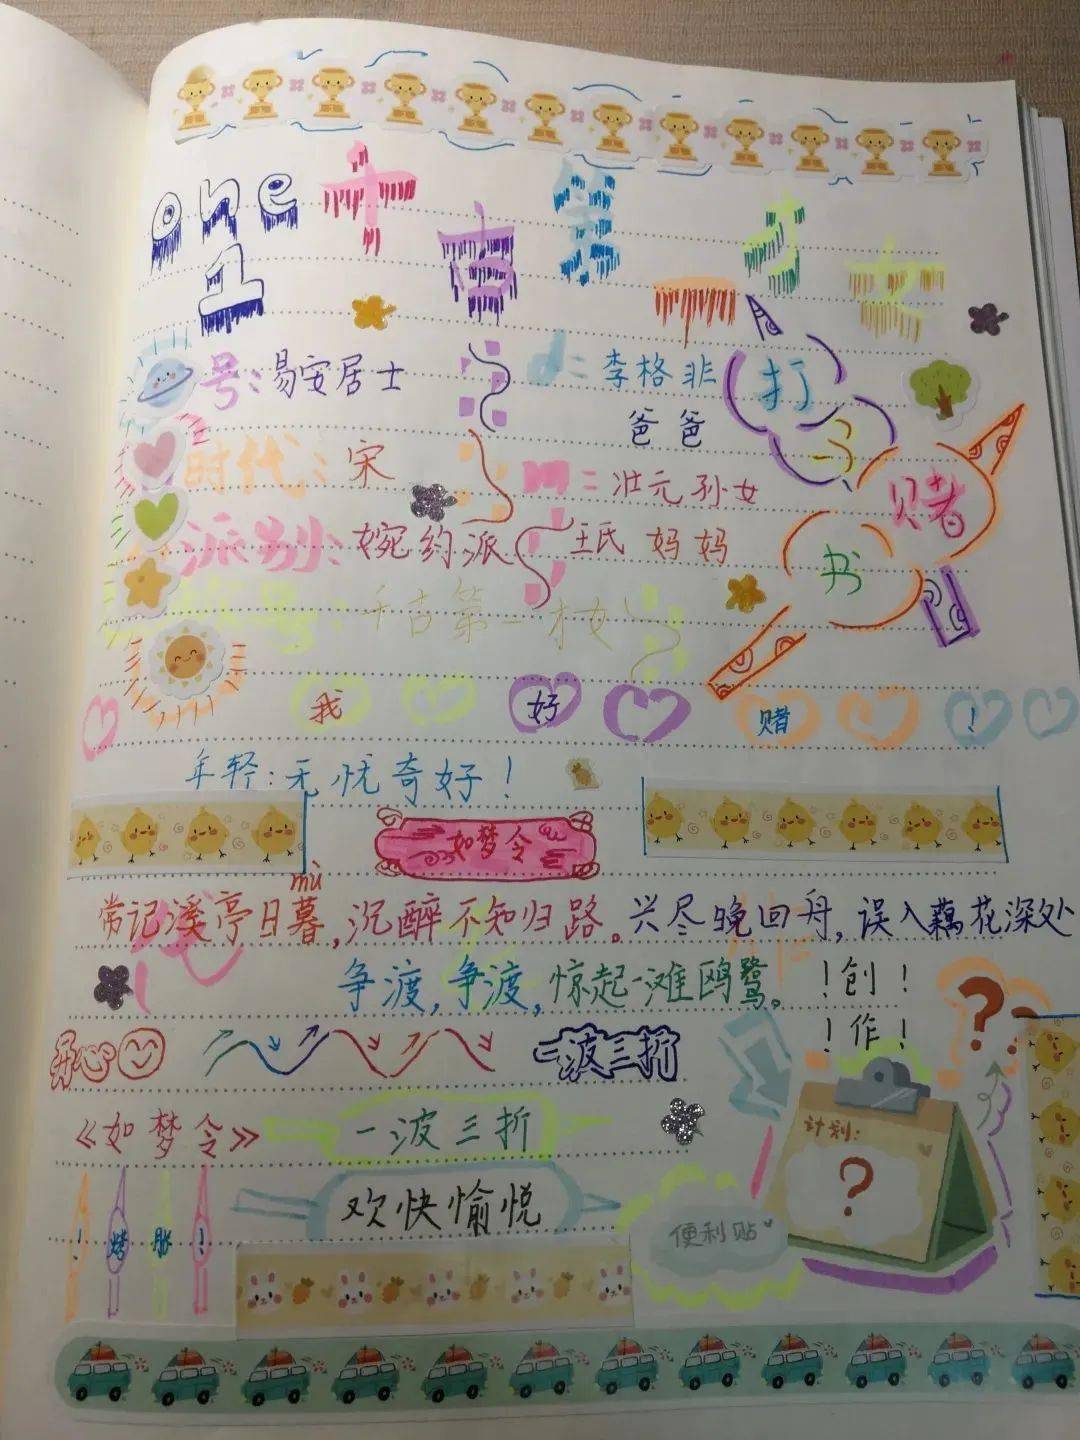 one 千古第一才女
1
号：易安居士
d：李格非
爸爸
打
马
赌
书
时代：宋
m：壮元孙女
王氏 妈妈
派别：婉约派
号：千古第一才女
我 好 赌 ！
年轻：无忧奇好！
如梦令
mù
常记溪亭日暮，沉醉不知归路。兴尽晚回舟，误入藕花深处
争渡，争渡，惊起一滩鸥鹭。
！创！
！作！
？
开心
一波三折
《如梦令》
一波三折
计划：
？
欢快愉悦
便利贴
！烤 ！